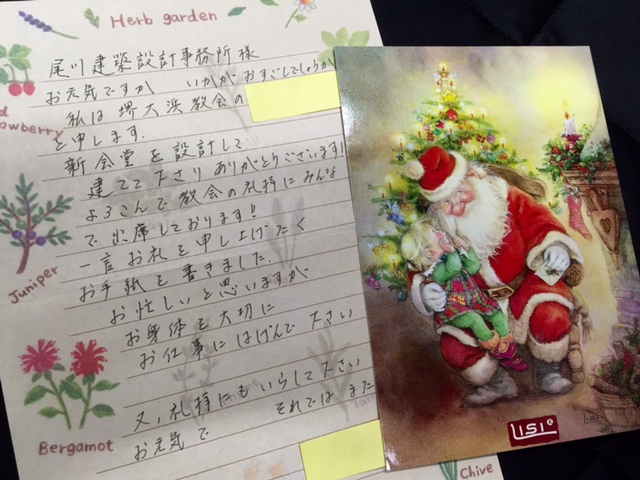 Herb garden
尾川建築設計事務所様
お元気ですか いかがおすごしでしょうか
私は堺大浜教会の
と申します.
新会堂を設計して
建てて下さりありがとうございます!
よろこんで教会の礼拝にみんな
で出席しております!!
一言お礼を申し上げたく
お手紙を書きました.
お忙しいと思いますが
お身体を大切に
お仕事にはげんで下さい
又、礼拝にもいらして下さい
お元気で それではまた
d
awberry
Juniper
Bergamot
Chive
LISI